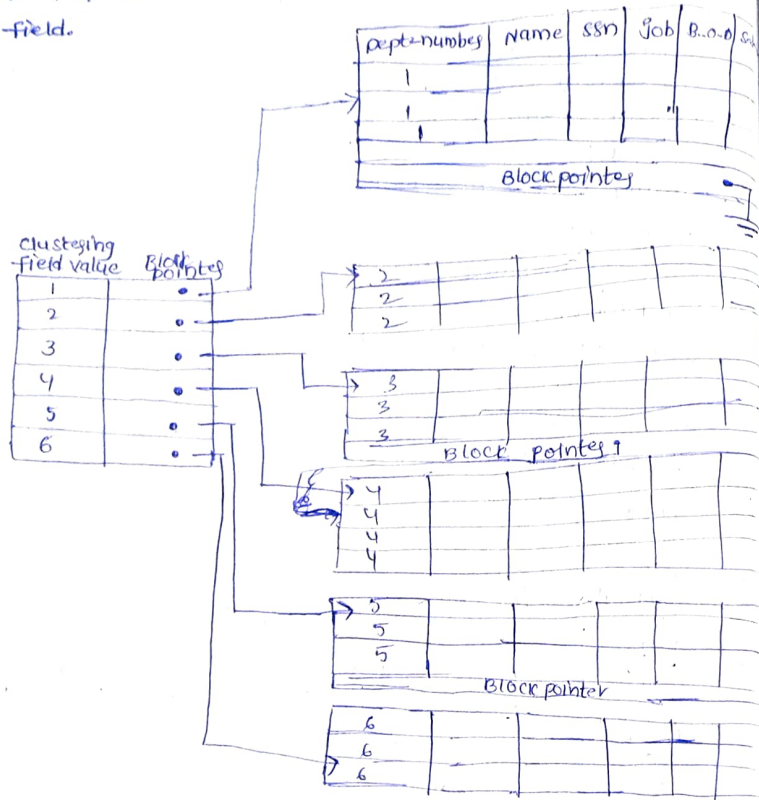 field.
Dept-number Name ssn job B.O.D
1
1
1
Block pointer
clustering
field value Block
pointer
1
2
3
4
5
6
2
2
2
3
3
3
Block pointer
4
4
4
4
5
5
5
Block pointer
6
6
6